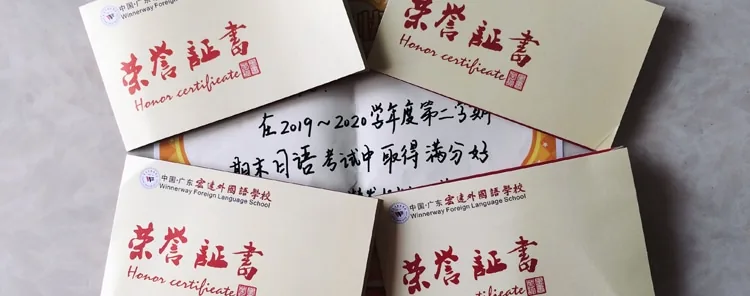 中国·广东
Winnerway Foreign
榮誉証書
Honor certificate
榮誉証書
Honor certificate
在2019~2020学年度第二学期
期末日语考试中取得满分好
中国·广东 宏达外國語學校
Winnerway Foreign Language School
榮誉証書
Honor certificate
中国·广东 宏达外國語學校
Winnerway Foreign Language School
榮誉証書
Honor certificate